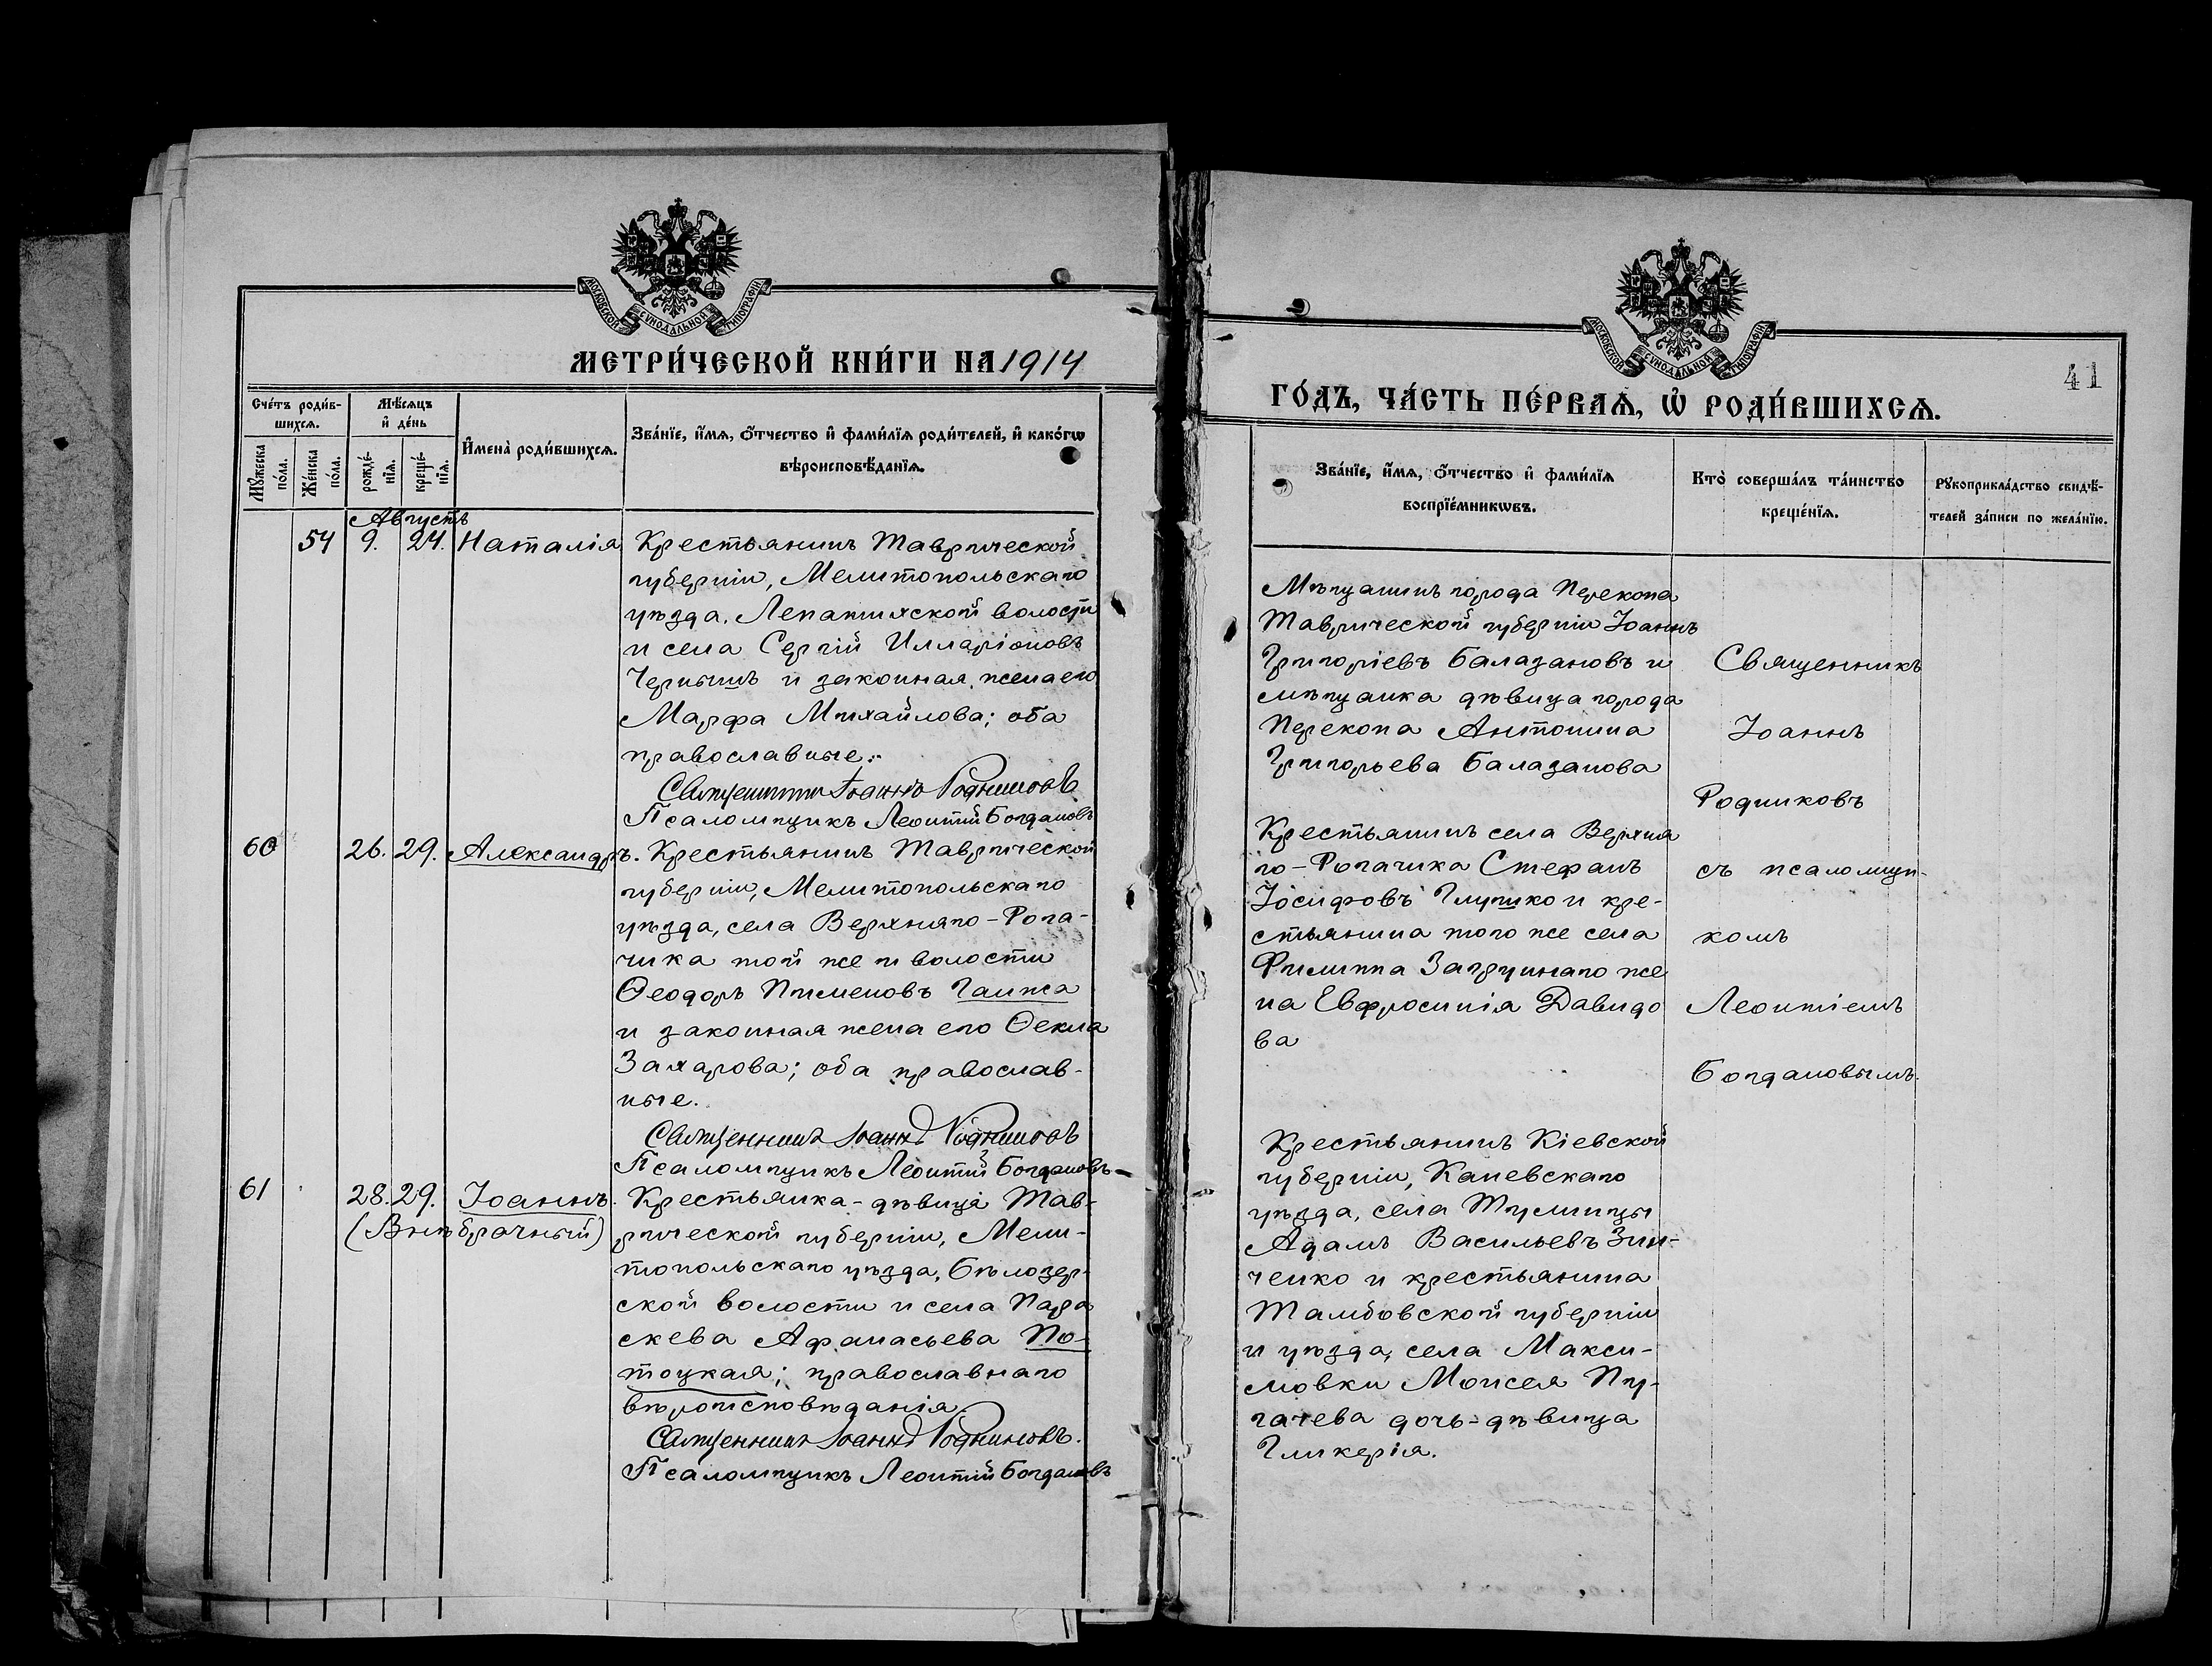 МОСКОВСКОЙ СѴНОДАЛЬНОЙ ТИПОГРАФІИ
МЕТРИ́ЧЕСКОЙ КНИ́ГИ НА 1914
Сче́тъ роди́в-
шихсѧ.
Мѣ́сѧцъ
и҆ де́нь
Мꙋ́жеска
по́ла.
Же́нска
по́ла.
рожде́-
нїѧ.
креще́-
нїѧ.
И҆мена̀ роди́вшихсѧ.
Зва́нїе, и҆́мѧ, ѻ҆́тчество и҆ фами́лїѧ роди́телей, и҆ како́гѡ
вѣроисповѣ́данїѧ.
Августъ
54 9. 24. Наталія
Крестьянинъ Таврической
губерніи, Мелитопольскаго
уѣзда, Лепатихской волости
и села Сергій Илларіоновъ
Чернышъ и законная жена его
Марѳа Михайлова; оба
православные.
Священникъ Іоаннъ Родниковъ
Псаломщикъ Леонтій Богдановъ
60 26. 29. Александръ.
Крестьянинъ Таврической
губерніи, Мелитопольскаго
уѣзда, села Верхняго-Рога-
чика той же и волости
Ѳеодоръ Пименовъ Ганжа
и законная жена его Ѳекла
Захарова; оба православ-
ные.
Священникъ Іоаннъ Родниковъ
Псаломщикъ Леонтій Богдановъ
61 28. 29. Іоаннъ.
(Внѣбрачный)
Крестьянка-дѣвица Тав-
рической губерніи, Мели-
топольскаго уѣзда, Бѣлозер-
ской волости и села Пара
скева Аѳанасьева По-
тоцкая; православнаго
вѣроисповѣданія.
Священникъ Іоаннъ Родниковъ.
Псаломщикъ Леонтій Богдановъ
МОСКОВСКОЙ СѴНОДАЛЬНОЙ ТИПОГРАФІИ
41
ГО́ДЪ, ЧА́СТЬ ПЕ́РВАѦ, Ѡ҆ РОДИ́ВШИХСѦ.
Зва́нїе, и҆́мѧ, ѻ҆́тчество и҆ фами́лїѧ
воспрїе́мникѡвъ.
Кто̀ соверша́лъ та́инство
креще́нїѧ.
Рꙋкоприкла́дство свидѣ́-
телей за́писи по жела́нїю.
Мѣщанинъ города Перекопа
Таврической губерніи Іоаннъ
Григоріевъ Балазановъ и
мѣщанка дѣвица города
Перекопа Антонина
Григорьева Балазанова
Крестьянинъ села Верхня
го-Рогачика Стефанъ
Іосифовъ Глушко и кре-
стьянина того же села
Филиппа Загруннаго же
на Евфросинія Давидо
ва
Крестьянинъ Кіевской
губерніи, Каневскаго
уѣзда, села Тулинцы
Адамъ Васильевъ Зин-
ченко и крестьянина
Тамбовской губерніи
и уѣзда, села Макси-
мовки Моисея Пу-
гачева дочь-дѣвица
Гликерія.
Священникъ
Іоаннъ
Родниковъ
съ псаломщи-
комъ
Леонтіемъ
Богдановымъ.